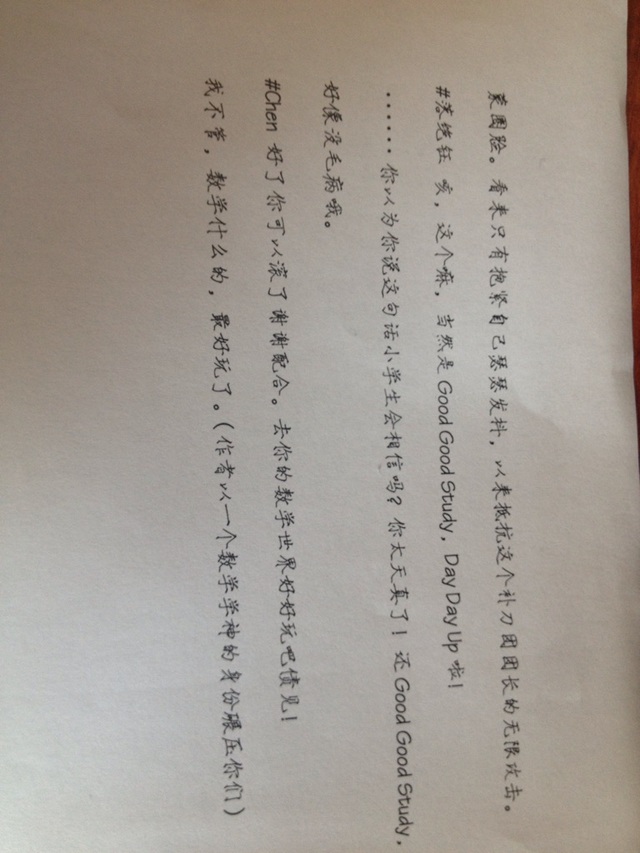 素圈脸。看来只有抱紧自己瑟瑟发抖,以来抵抗这个补刀团团长的无限攻击。
#落绕钰 咳,这个嘛,当然是Good Good Study,Day Day Up啦!
······你以为你说这句话小学生会相信吗?你太天真了!还Good Good Study,
好像没毛病哦。
#Chen 好了你可以滚了谢谢配合。去你的数学世界好好玩吧债见!
我不管,数学什么的,最好玩了。(作者以一个数学学神的身份碾压你们)